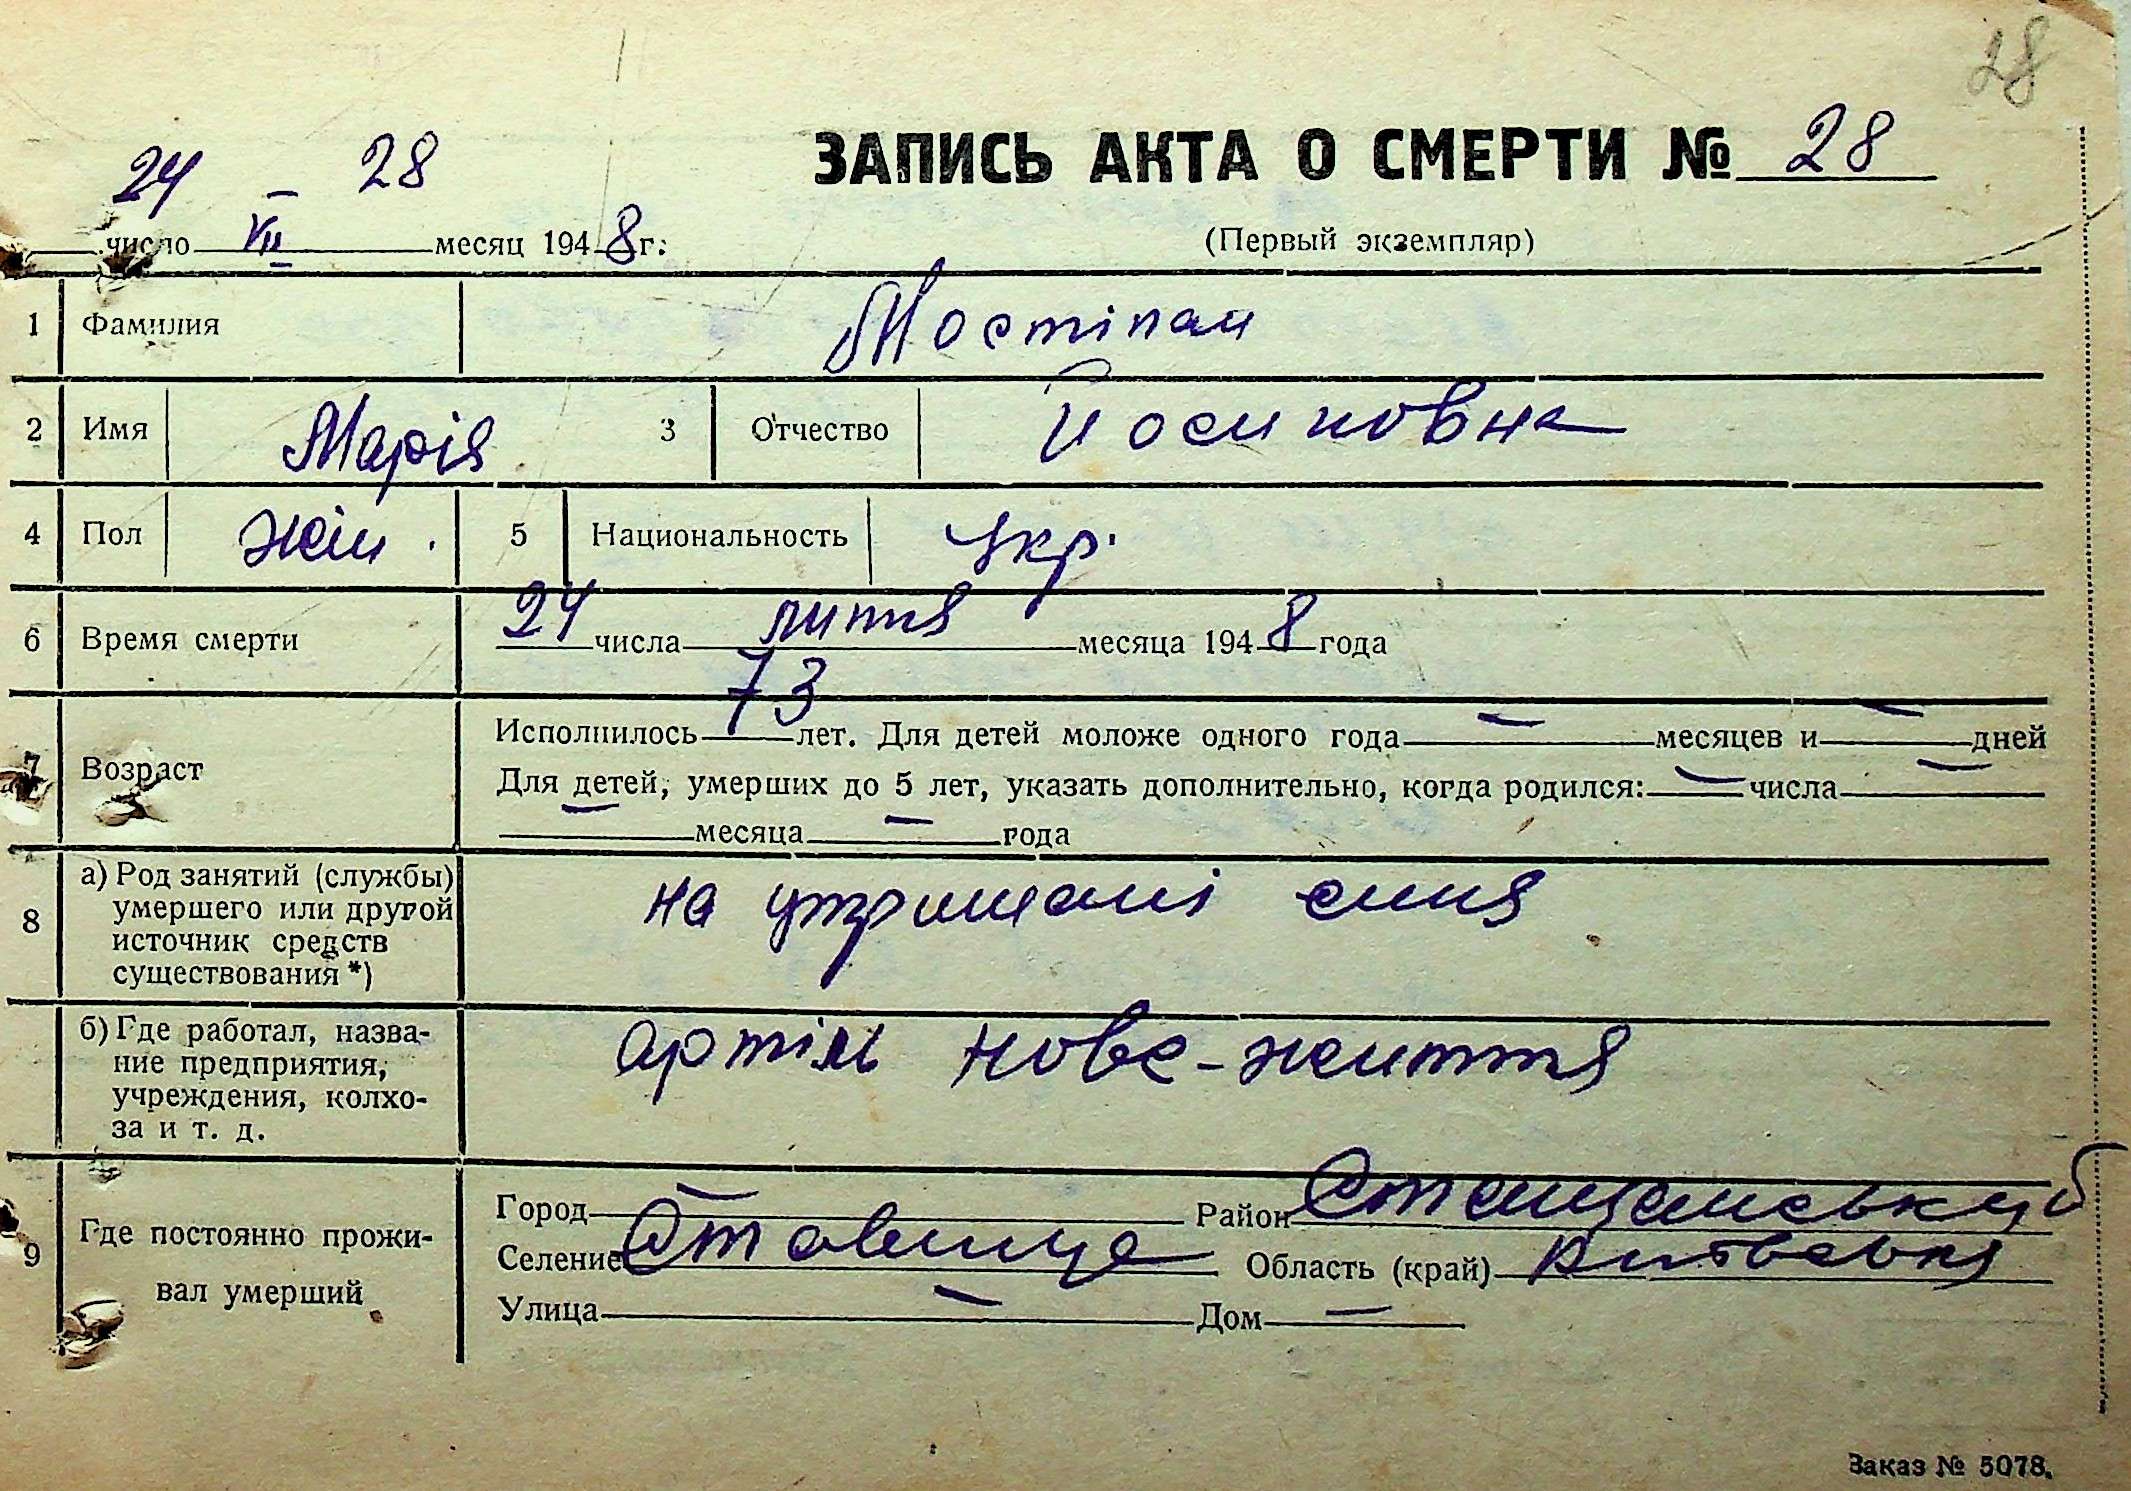 28
ЗАПИСЬ АКТА О СМЕРТИ № 28
24 28
число VII месяц 1948г.
(Первый экземпляр)
1 Фамилия Мостіпан
2 Имя Марія 3 Отчество Йосиповна
4 Пол жін. 5 Национальность Укр.
6 Время смерти 24 числа липня месяца 1948 года
7 Возраст
Исполнилось 73 лет. Для детей моложе одного года — месяцев и — дней
Для детей, умерших до 5 лет, указать дополнительно, когда родился: — числа —
— месяца — года
8 а) Род занятий (службы) умершего или другой источник средств существования *)
на утриманні сина
б) Где работал, назва-
ние предприятия,
учреждения, колхо-
за и т. д.
Артіль нове-життя
9 Где постоянно прожи-
вал умерший
Город — Район
Селение Ставище Область (край)
Улица — Дом —
Заказ № 5078.